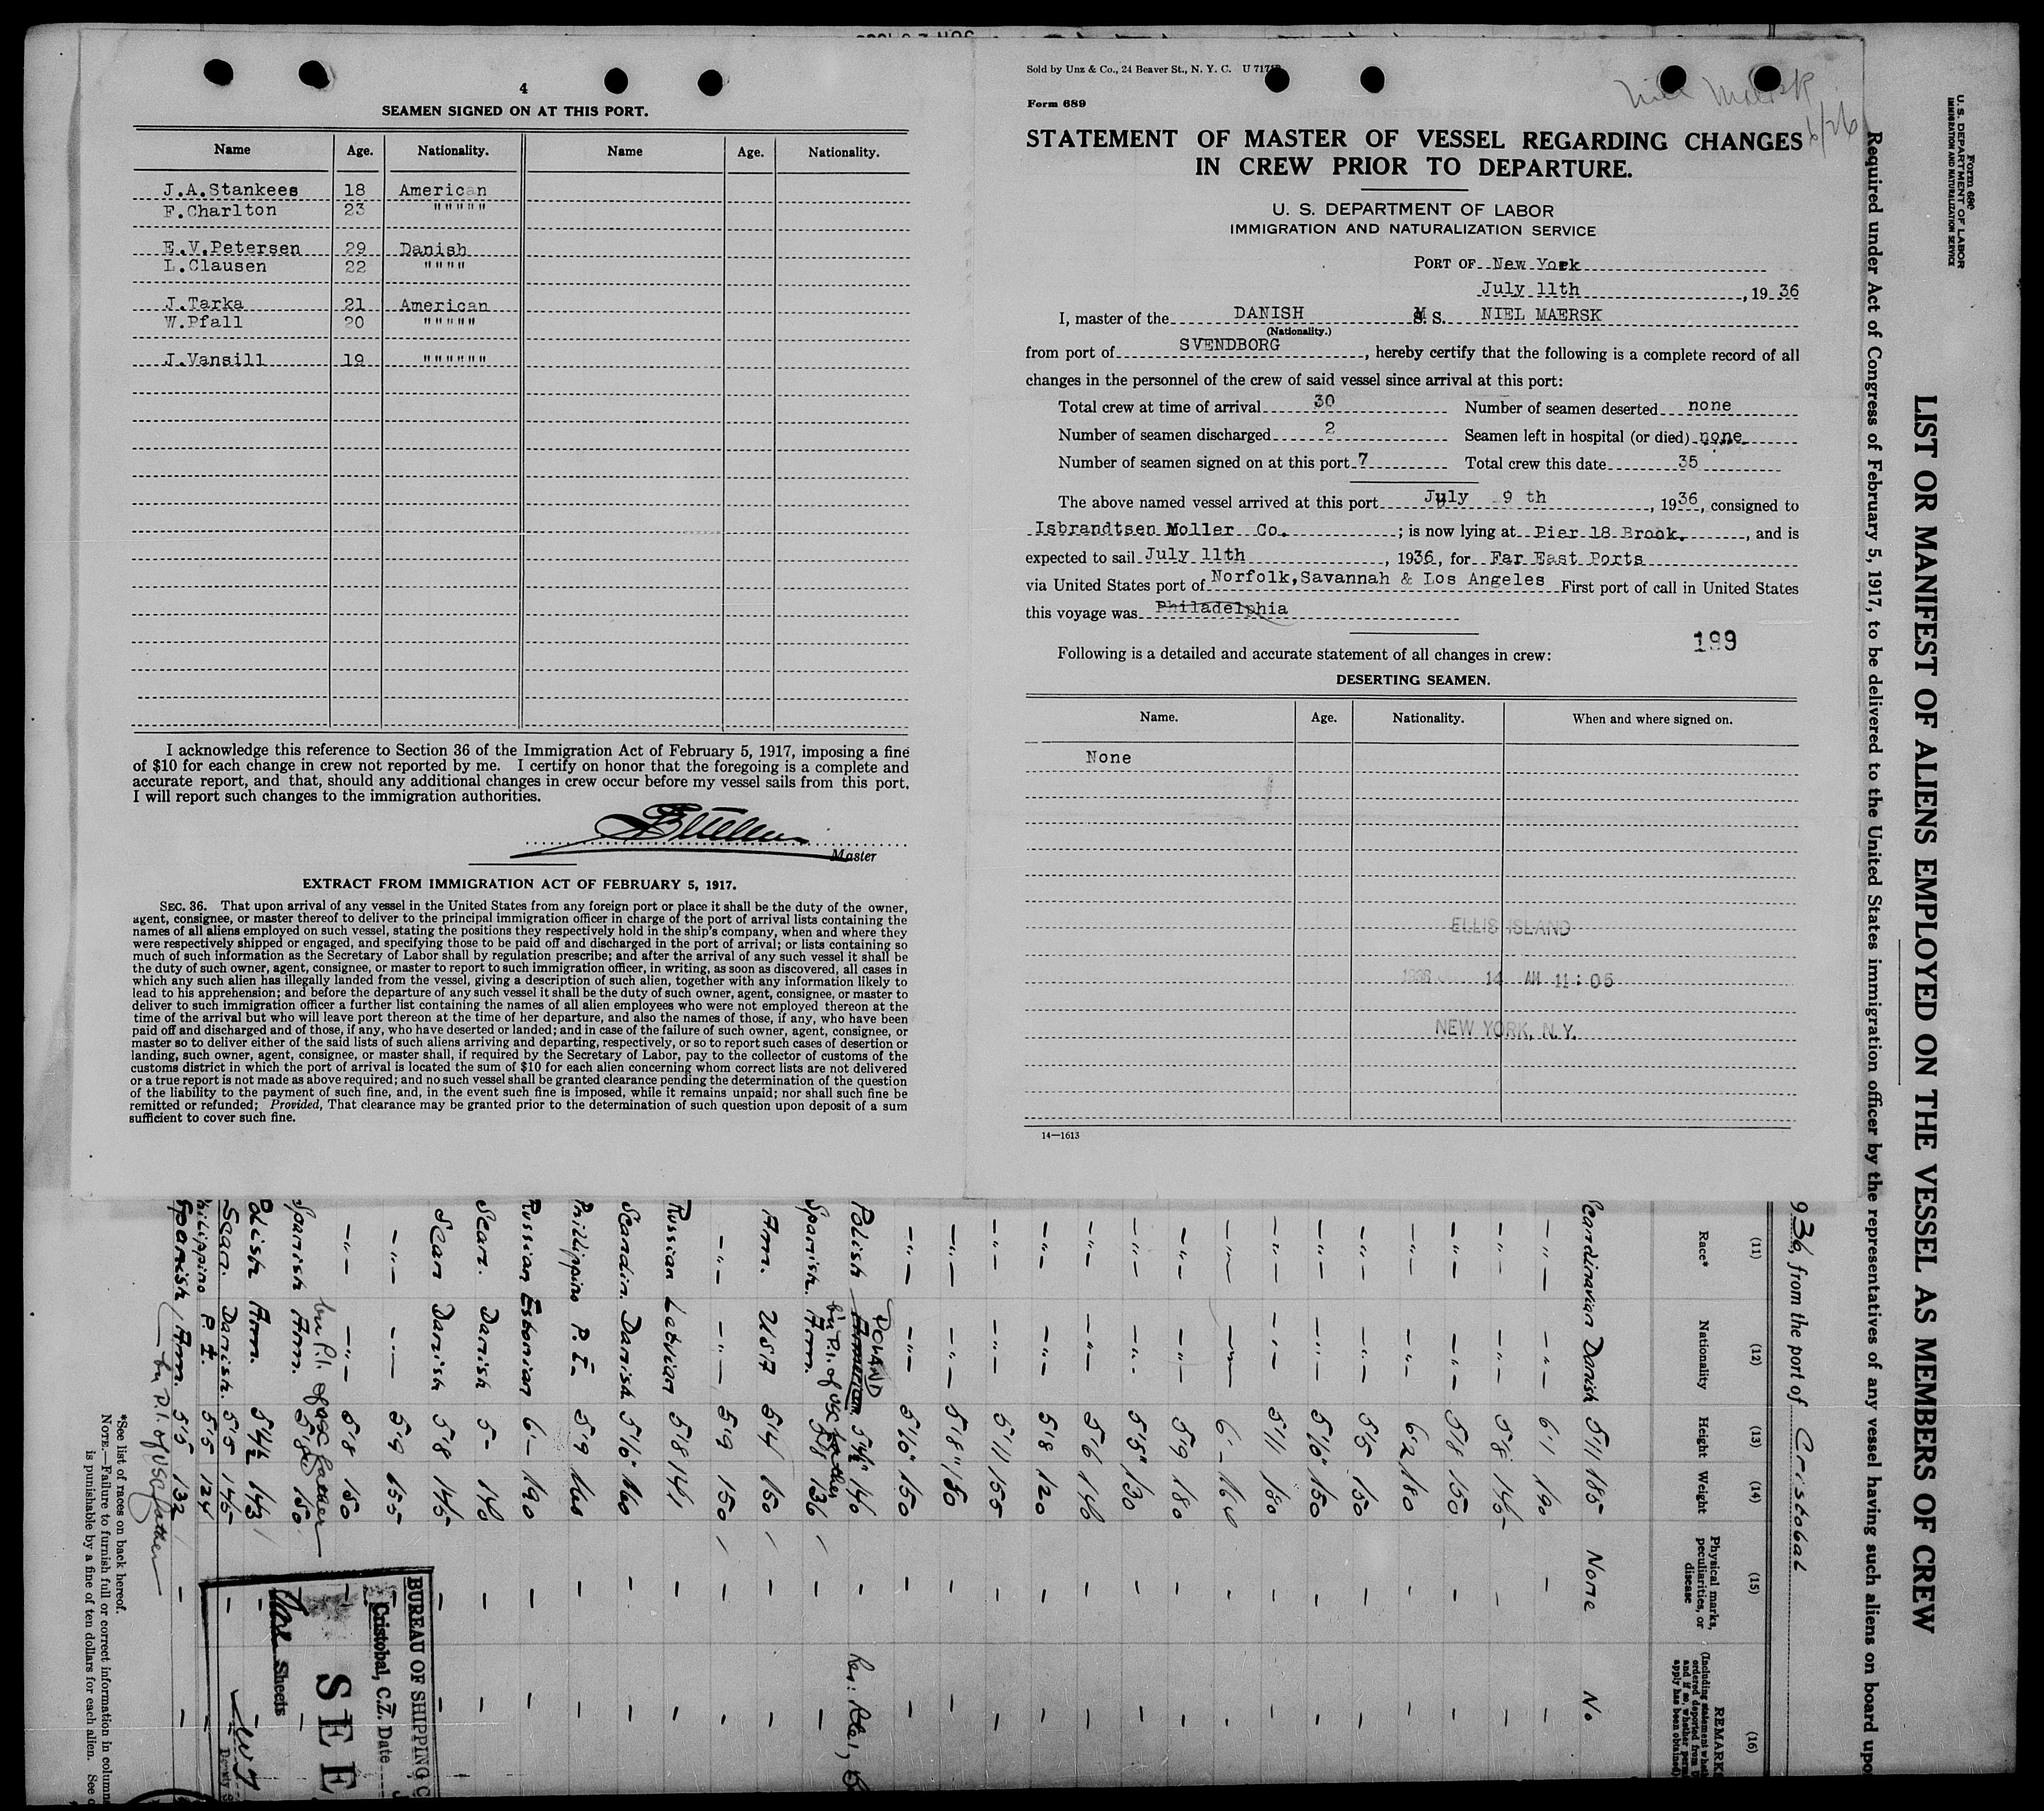 4
SEAMEN SIGNED ON AT THIS PORT.
Name Age. Nationality. Name Age. Nationality.
J.A.Stankees 18 American
F.Charlton 23 """""
E.V.Petersen 29 Danish
L.Clausen 22 """"
J.Tarka 21 American
W.Pfall 20 """""
J.Vansill 19 """"""
I acknowledge this reference to Section 36 of the Immigration Act of February 5, 1917, imposing a fine
of $10 for each change in crew not reported by me. I certify on honor that the foregoing is a complete and
accurate report, and that, should any additional changes in crew occur before my vessel sails from this port,
I will report such changes to the immigration authorities.
Master
EXTRACT FROM IMMIGRATION ACT OF FEBRUARY 5, 1917.
SEC. 36. That upon arrival of any vessel in the United States from any foreign port or place it shall be the duty of the owner,
agent, consignee, or master thereof to deliver to the principal immigration officer in charge of the port of arrival lists containing the
names of all aliens employed on such vessel, stating the positions they respectively hold in the ship's company, when and where they
were respectively shipped or engaged, and specifying those to be paid off and discharged in the port of arrival; or lists containing so
much of such information as the Secretary of Labor shall by regulation prescribe; and after the arrival of any such vessel it shall be
the duty of such owner, agent, consignee, or master to report to such immigration officer, in writing, as soon as discovered, all cases in
which any such alien has illegally landed from the vessel, giving a description of such alien, together with any information likely to
lead to his apprehension; and before the departure of any such vessel it shall be the duty of such owner, agent, consignee, or master to
deliver to such immigration officer a further list containing the names of all alien employees who were not employed thereon at the
time of the arrival but who will leave port thereon at the time of her departure, and also the names of those, if any, who have been
paid off and discharged and of those, if any, who have deserted or landed; and in case of the failure of such owner, agent, consignee, or
master so to deliver either of the said lists of such aliens arriving and departing, respectively, or so to report such cases of desertion or
landing, such owner, agent, consignee, or master shall, if required by the Secretary of Labor, pay to the collector of customs of the
customs district in which the port of arrival is located the sum of $10 for each alien concerning whom correct lists are not delivered
or a true report is not made as above required; and no such vessel shall be granted clearance pending the determination of the question
of the liability to the payment of such fine, and, in the event such fine is imposed, while it remains unpaid; nor shall such fine be
remitted or refunded; Provided, That clearance may be granted prior to the determination of such question upon deposit of a sum
sufficient to cover such fine.
Sold by Unz & Co., 24 Beaver St., N. Y. C. U 717
Niel Maersk
Form 689
6/26
STATEMENT OF MASTER OF VESSEL REGARDING CHANGES
IN CREW PRIOR TO DEPARTURE.
U. S. DEPARTMENT OF LABOR
IMMIGRATION AND NATURALIZATION SERVICE
PORT OF New York
July 11th, 1936
I, master of the DANISH M S. S. NIEL MAERSK
(Nationality.)
from port of SVENDBORG, hereby certify that the following is a complete record of all
changes in the personnel of the crew of said vessel since arrival at this port:
Total crew at time of arrival 30 Number of seamen deserted none
Number of seamen discharged 2 Seamen left in hospital (or died) none
Number of seamen signed on at this port 7 Total crew this date 35
The above named vessel arrived at this port July 9 th, 1936, consigned to
Isbrandtsen Moller Co.; is now lying at Pier 18 Brook., and is
expected to sail July 11th, 1936, for Far East Ports
via United States port of Norfolk,Savannah & Los Angeles First port of call in United States
this voyage was Philadelphia
199
Following is a detailed and accurate statement of all changes in crew:
DESERTING SEAMEN.
Name. Age. Nationality. When and where signed on.
None
ELLIS ISLAND
1936 14 AM 11:05
NEW YORK, N.Y.
14—1613
Form 680
U. S. DEPARTMENT OF LABOR
IMMIGRATION AND NATURALIZATION SERVICE
LIST OR MANIFEST OF ALIENS EMPLOYED ON THE VESSEL AS MEMBERS OF CREW
Required under Act of Congress of February 5, 1917, to be delivered to the United States immigration officer by the representatives of any vessel having such aliens on board upo
936, from the port of Cristobal
(11) (12) (13) (14) (15) (16)
Race* Nationality Height Weight Physical marks, peculiarities, or disease REMARKS
Scandinavian Danish 5'11 185 None No
-"- -"- 6'1 190 - -
-"- -"- 5'8 145 - -
-"- -"- 5'8 150 - -
-"- -"- 6'2 180 - -
-"- -"- 5'5 150 - -
-"- -"- 5'10" 150 - -
-"- -"- 5'11 180 - -
-"- -"- 6'- 160 - -
-"- -"- 5'9 180 - -
-"- -"- 5'5" 130 - -
-"- -"- 5'6 148 - -
-"- -"- 5'8 120 - -
-"- -"- 5'11 155 - -
-"- -"- 5'8" 150 - -
-"- -"- 5'10" 150 - -
Polish American POLAND 5'4½" 140 -
Spanish. Am. by P.I. of USC father 5'8 136 - -
Am. USA 5'4 150 - -
-"- -"- 5'9 150 - -
Russian Latvian 5'8 141 - -
Scandin. Danish 5'10" 160 - -
Phillippino P.I. 5'9 160 - -
Russian Estonian 6- 190 - -
Scan. Danish 5- 140 - -
Scan Danish 5'8 145 - -
-"- -"- 5'9 155
-"- -"- 5'8 150 -
Spanish Am. by P.I. of USC father 5'8 150 -
Polish Am. 5'4½ 143 - -
Scan. Danish. 5'5 145 -
Philippino P.I. 5'5 124 -
Spanish Am. 5'5 132 - -
by P.I. of USC father
BUREAU OF SHIPPING C
Cristobal, C.Z. Date
SEE
Sheets
*See list of races on back hereof.
NOTE.—Failure to furnish full or correct information in column
is punishable by a fine of ten dollars for each alien. See